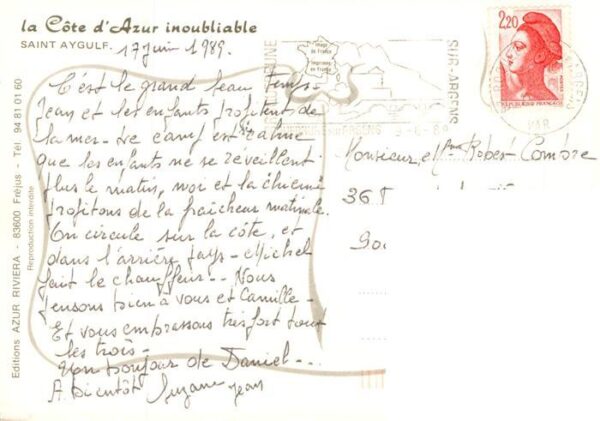 la Côte d'Azur inoubliable
SAINT AYGULF.
17 juin 1989.
C'est le grand beau temps-
Jean et les enfants profitent de
la mer- Le camp est calme
que les enfants ne se réveillent
plus le matin, moi et la
profitons de la fraîcheur matinale.
On circule sur la côte, et
dans l'arrière pays- Michel
fait le chauffeur.. Nous
pensons bien à vous et Camille-
Et vous embrassons très fort tout
les trois-
Un bonjour de Daniel---
A bientôt Suzanne Jean
Editions AZUR RIVIERA - 83600 Fréjus - Tél. 94 81 01 60
Reproduction interdite
Image de France
Imprimée en France
COMMUNE
SUR-ARGENS
2,20
REPUBLIQUE FRANÇAISE
POSTES
VAR
Monsieur et Robert Combre
36